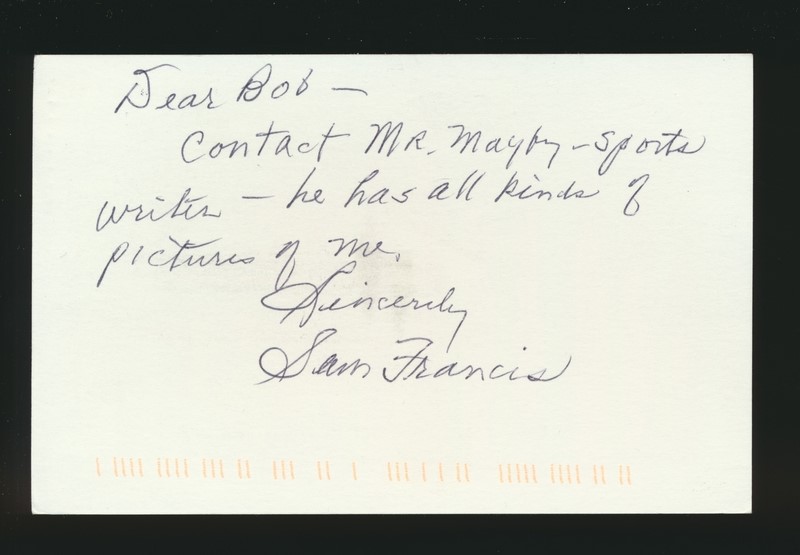 Dear Bob —
Contact Mr. Mayby - sports
writer — he has all kinds of
pictures of me.
Sincerely
Sam Francis